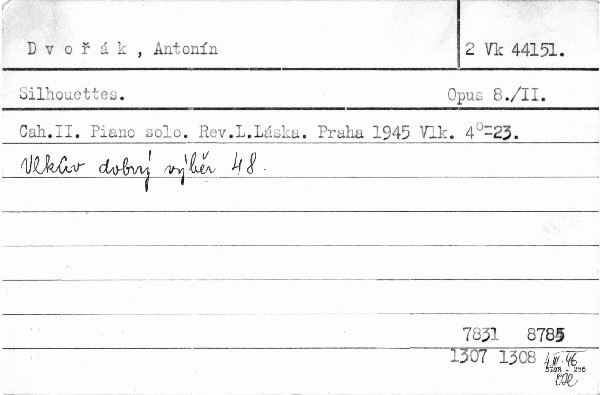 Dvořák, Antonín 2 Vk 44151.
Silhouettes. Opus 8./II.
Cah.II. Piano solo. Rev.L.Láska. Praha 1945 Vlk. 4°-23.
Vlkův dobrý výběr 48.
7831 8785
1307 1308 4.III.46